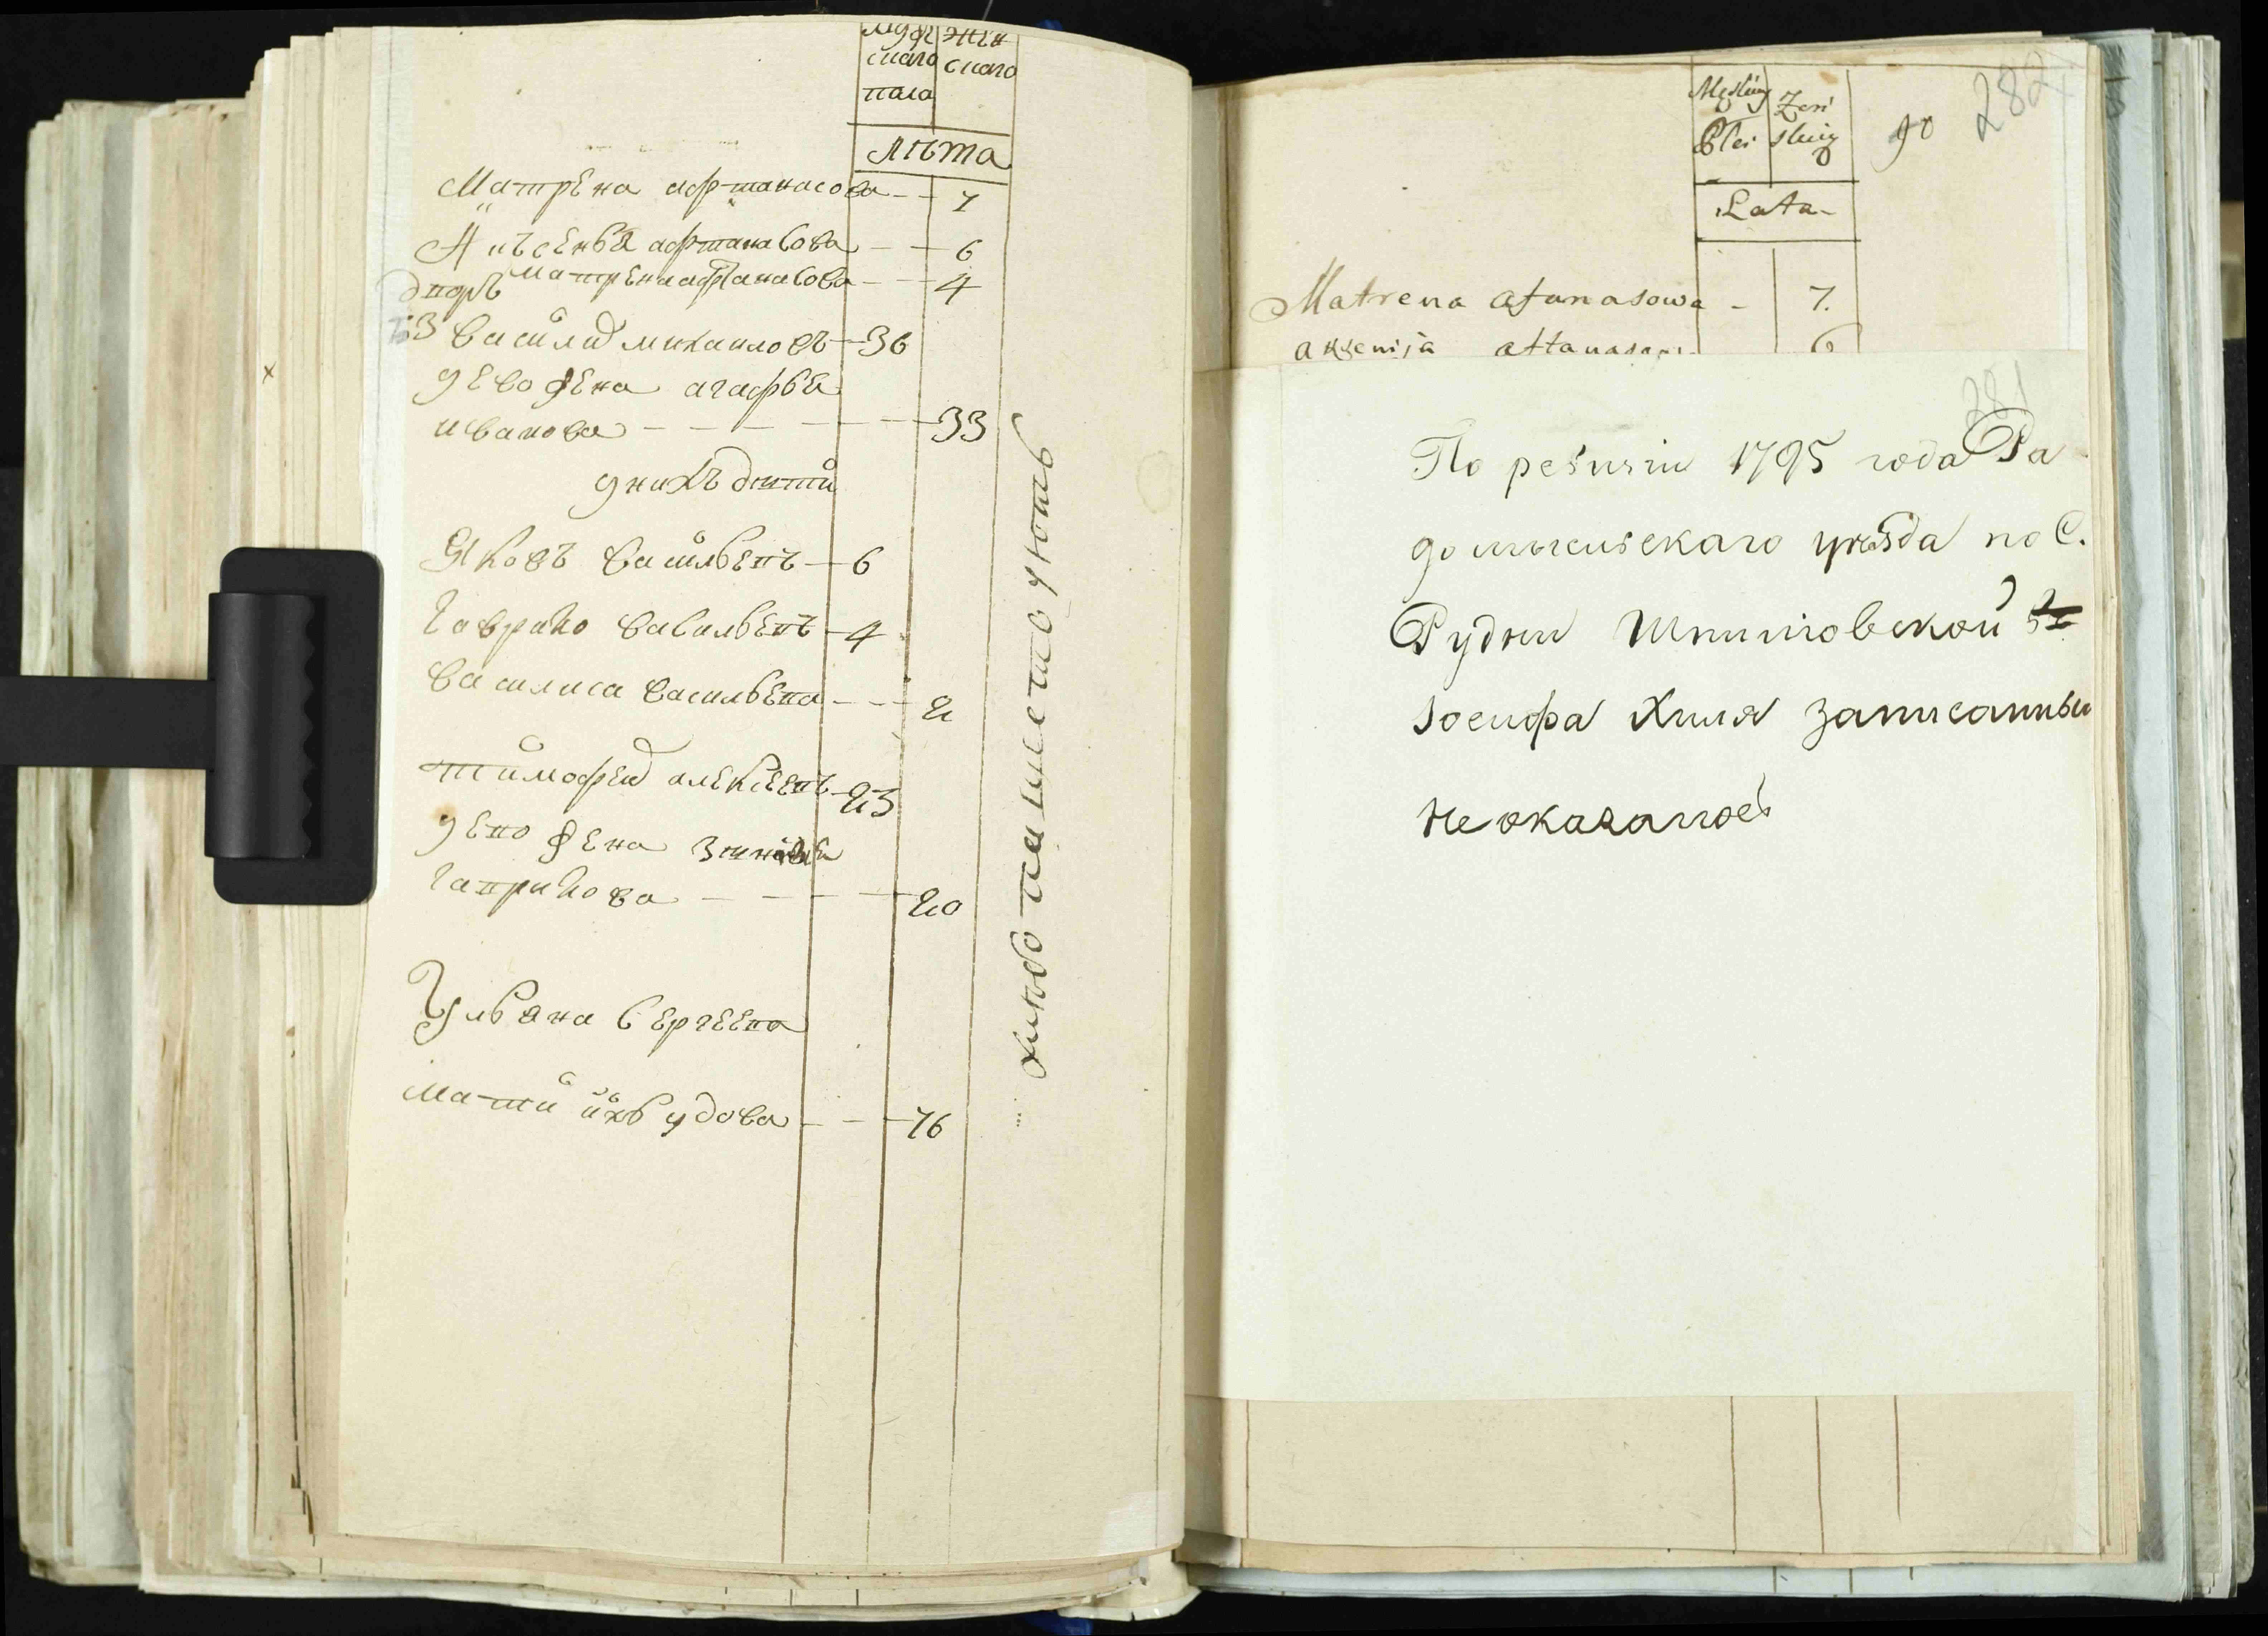 Муж
скаго
пала
жен
скаго
Лѣта
Матрена афтанасова — 7
Аксенья афтанасова — 6
Матрена афтанасова — 4
дворъ
13 Василий михаиловъ — 36
у ево жена агафья
иванова — 33
у нихъ дети
Яковъ васильевъ — 6
Гаврило васильевъ — 4
Василиса васильева — 2
тимофей алексеевъ — 23
у ево жена
гаврилова — 20
Ульяна Сергеева
Мати ихъ удова — 76
Męskiey
Płci
Żeń
skiey
90
282
Lata
Matrena Afanasowa — 7.
Aksenija Affanasow — 6
281
По ревизіи 1795 года Ра
домысльскаго уѣзда по С.
Рудни Шпиловской
Іосифа Хиля записаннымъ
не оказалось